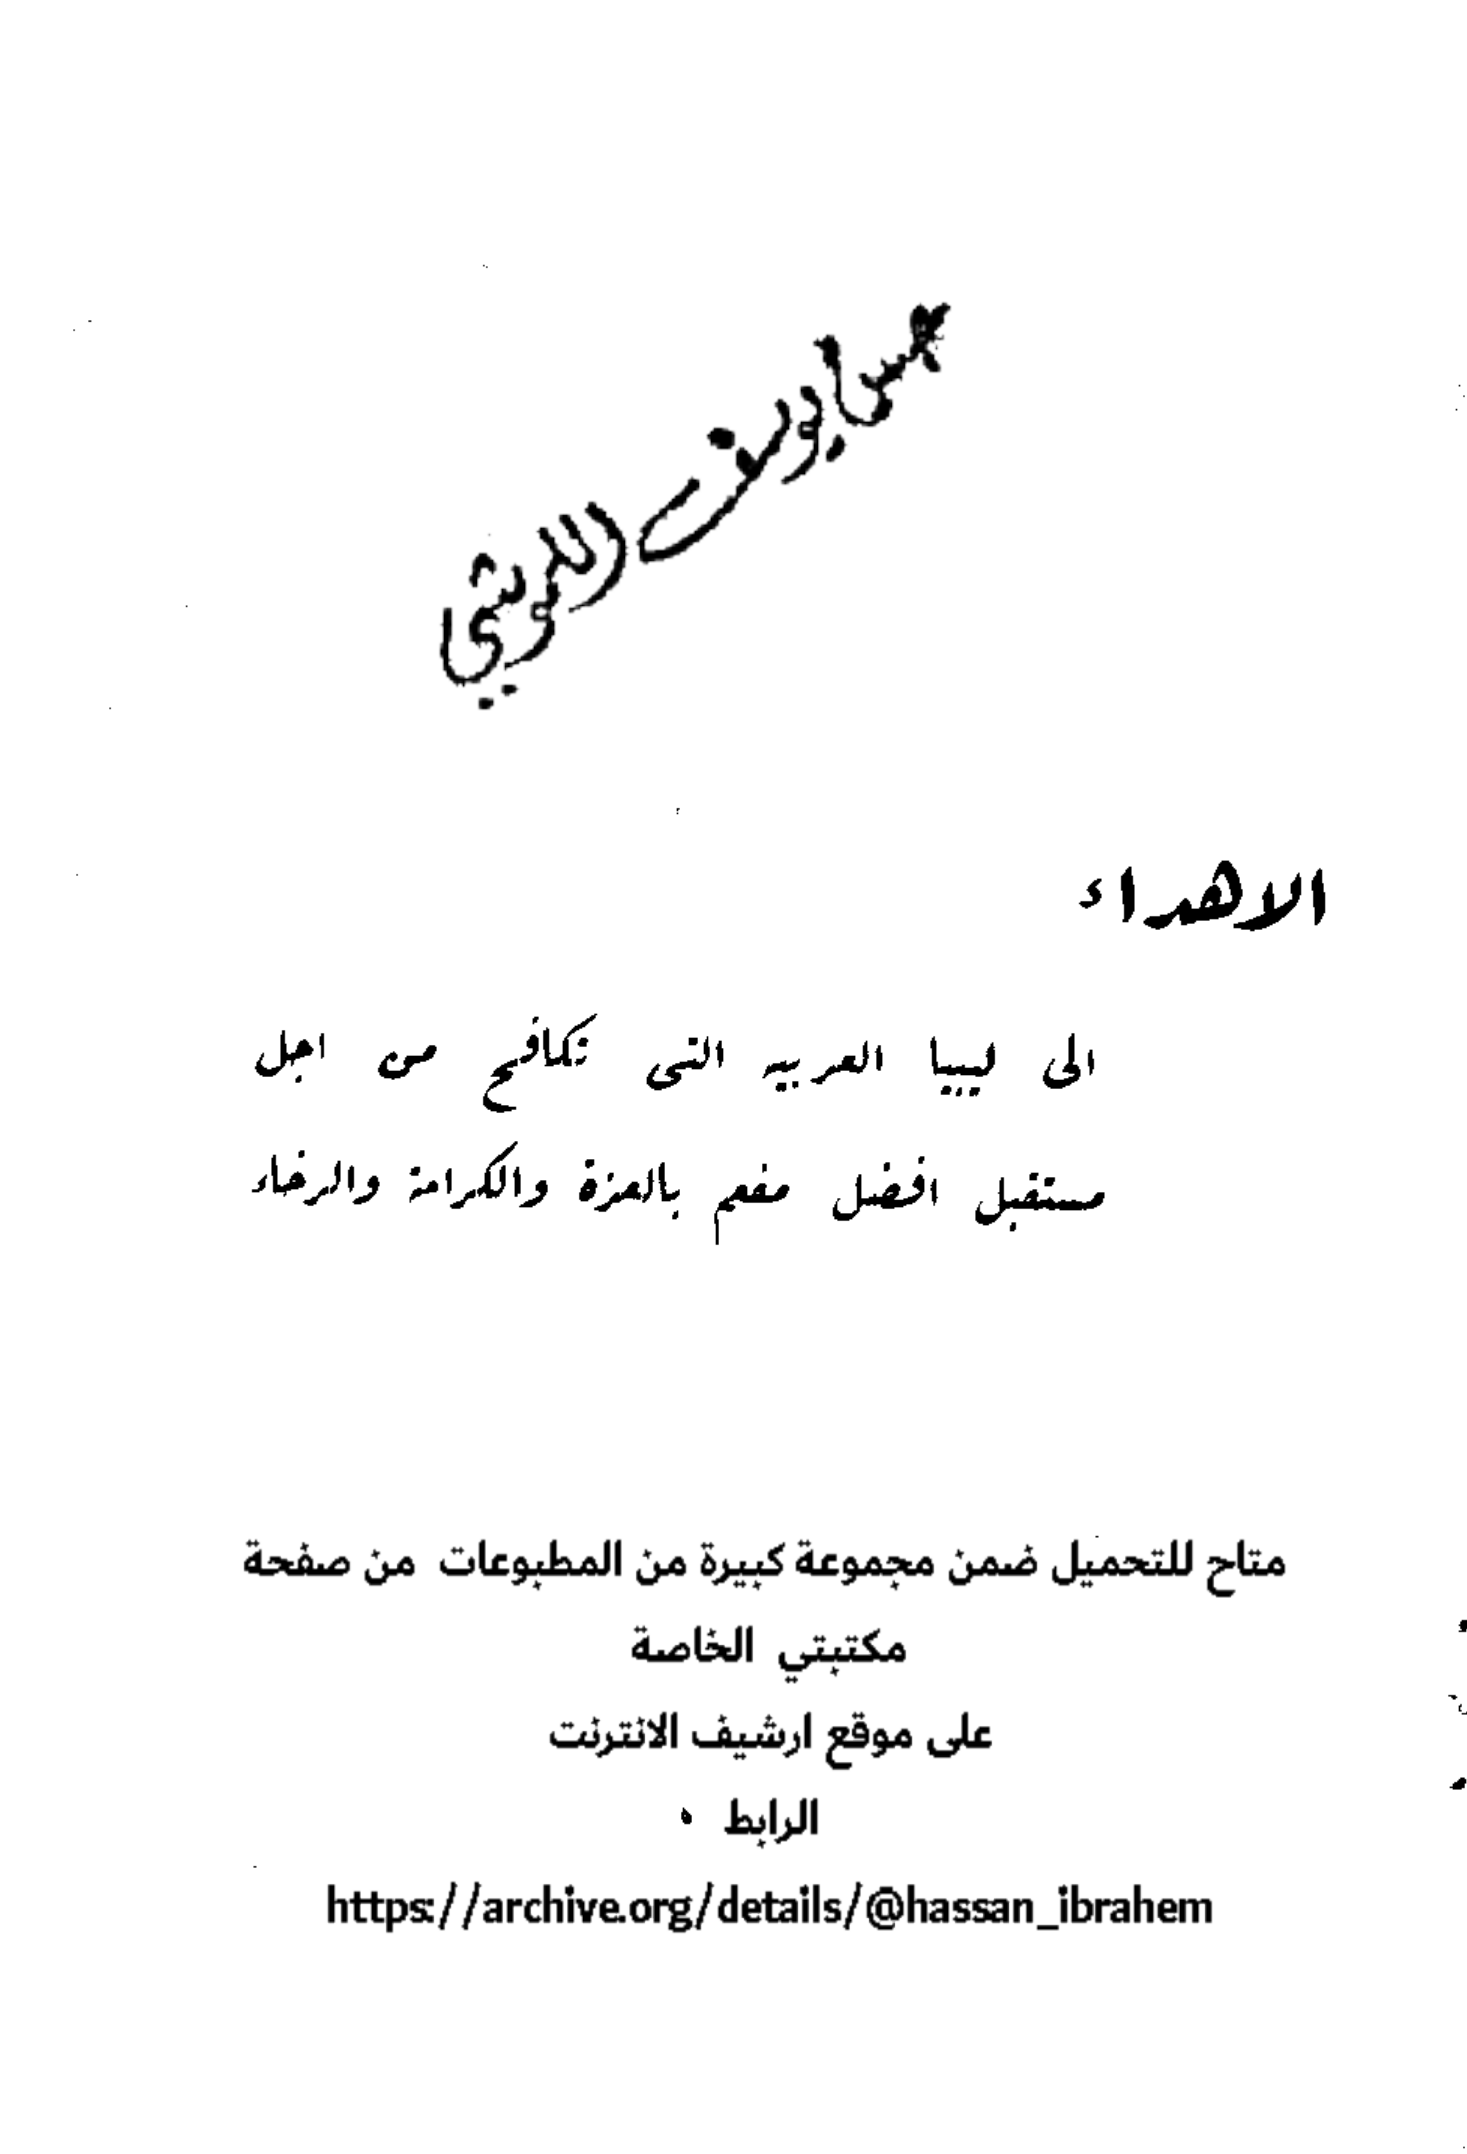 يوسف
الاهداء
الى ليبيا العربيه التى تكافح من اجل
مستقبل افضل مفعم بالعزة والكرامة والرخاء
متاح للتحميل ضمن مجموعة كبيرة من المطبوعات من صفحة
مكتبتي الخاصة
على موقع ارشيف الانترنت
الرابط
https://archive.org/details/@hassan_ibrahem